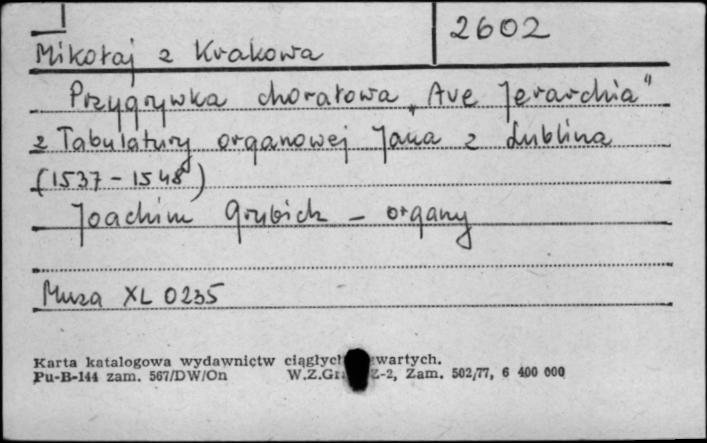 2602
Mikołaj z Krakowa
Przygrywka chorałowa „Ave Jerarchia"
z Tabulatury organowej Jana z Lublina
(1537 - 1548)
Joachim Grubich - organy
Muza XL 0235
Karta katalogowa wydawnictw wartych.
Pu-B-144 zam. 567/DW/On W.Z.Gr Z-2, Zam. 502/77, 6 400 000